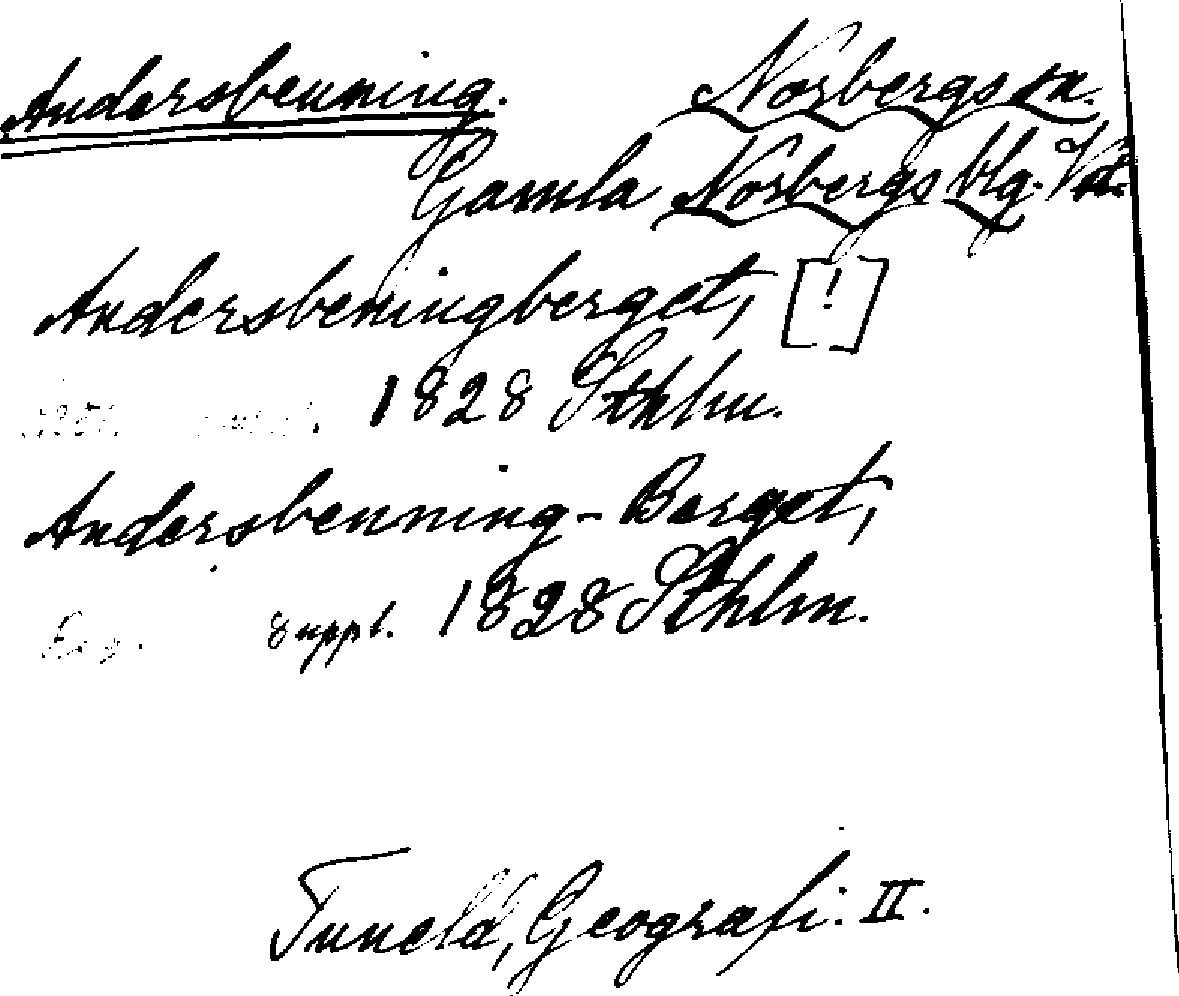 Andersbenning. Norbergs sn.
Gamla Norbergs blg. Vstm.
Andersbeningberget, [!]
1828 Sthlm.
Andersbenning-Berget,
Suppl. 1828 Sthlm.
Tuneld, Geografi. II.